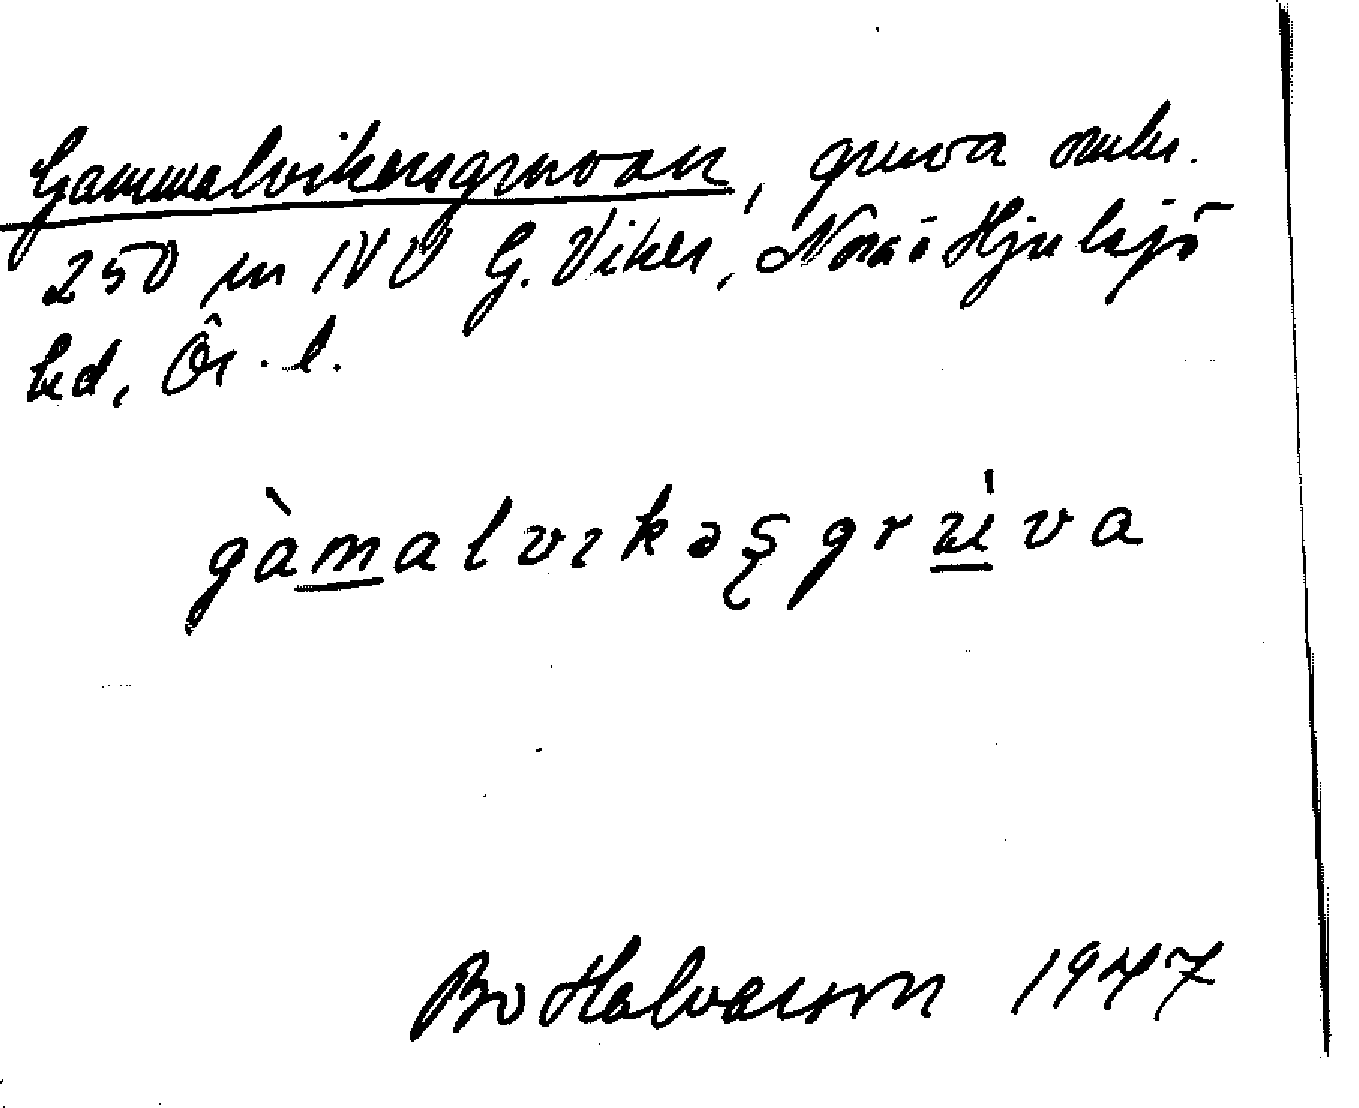 Gammalvikersgruvan, gruva omkr.
250 m NV G. Viker, Nora o Hjulsjö
hd, Ör. l.
gàmalvıkəşgrúva
Bo Halvarson 1947